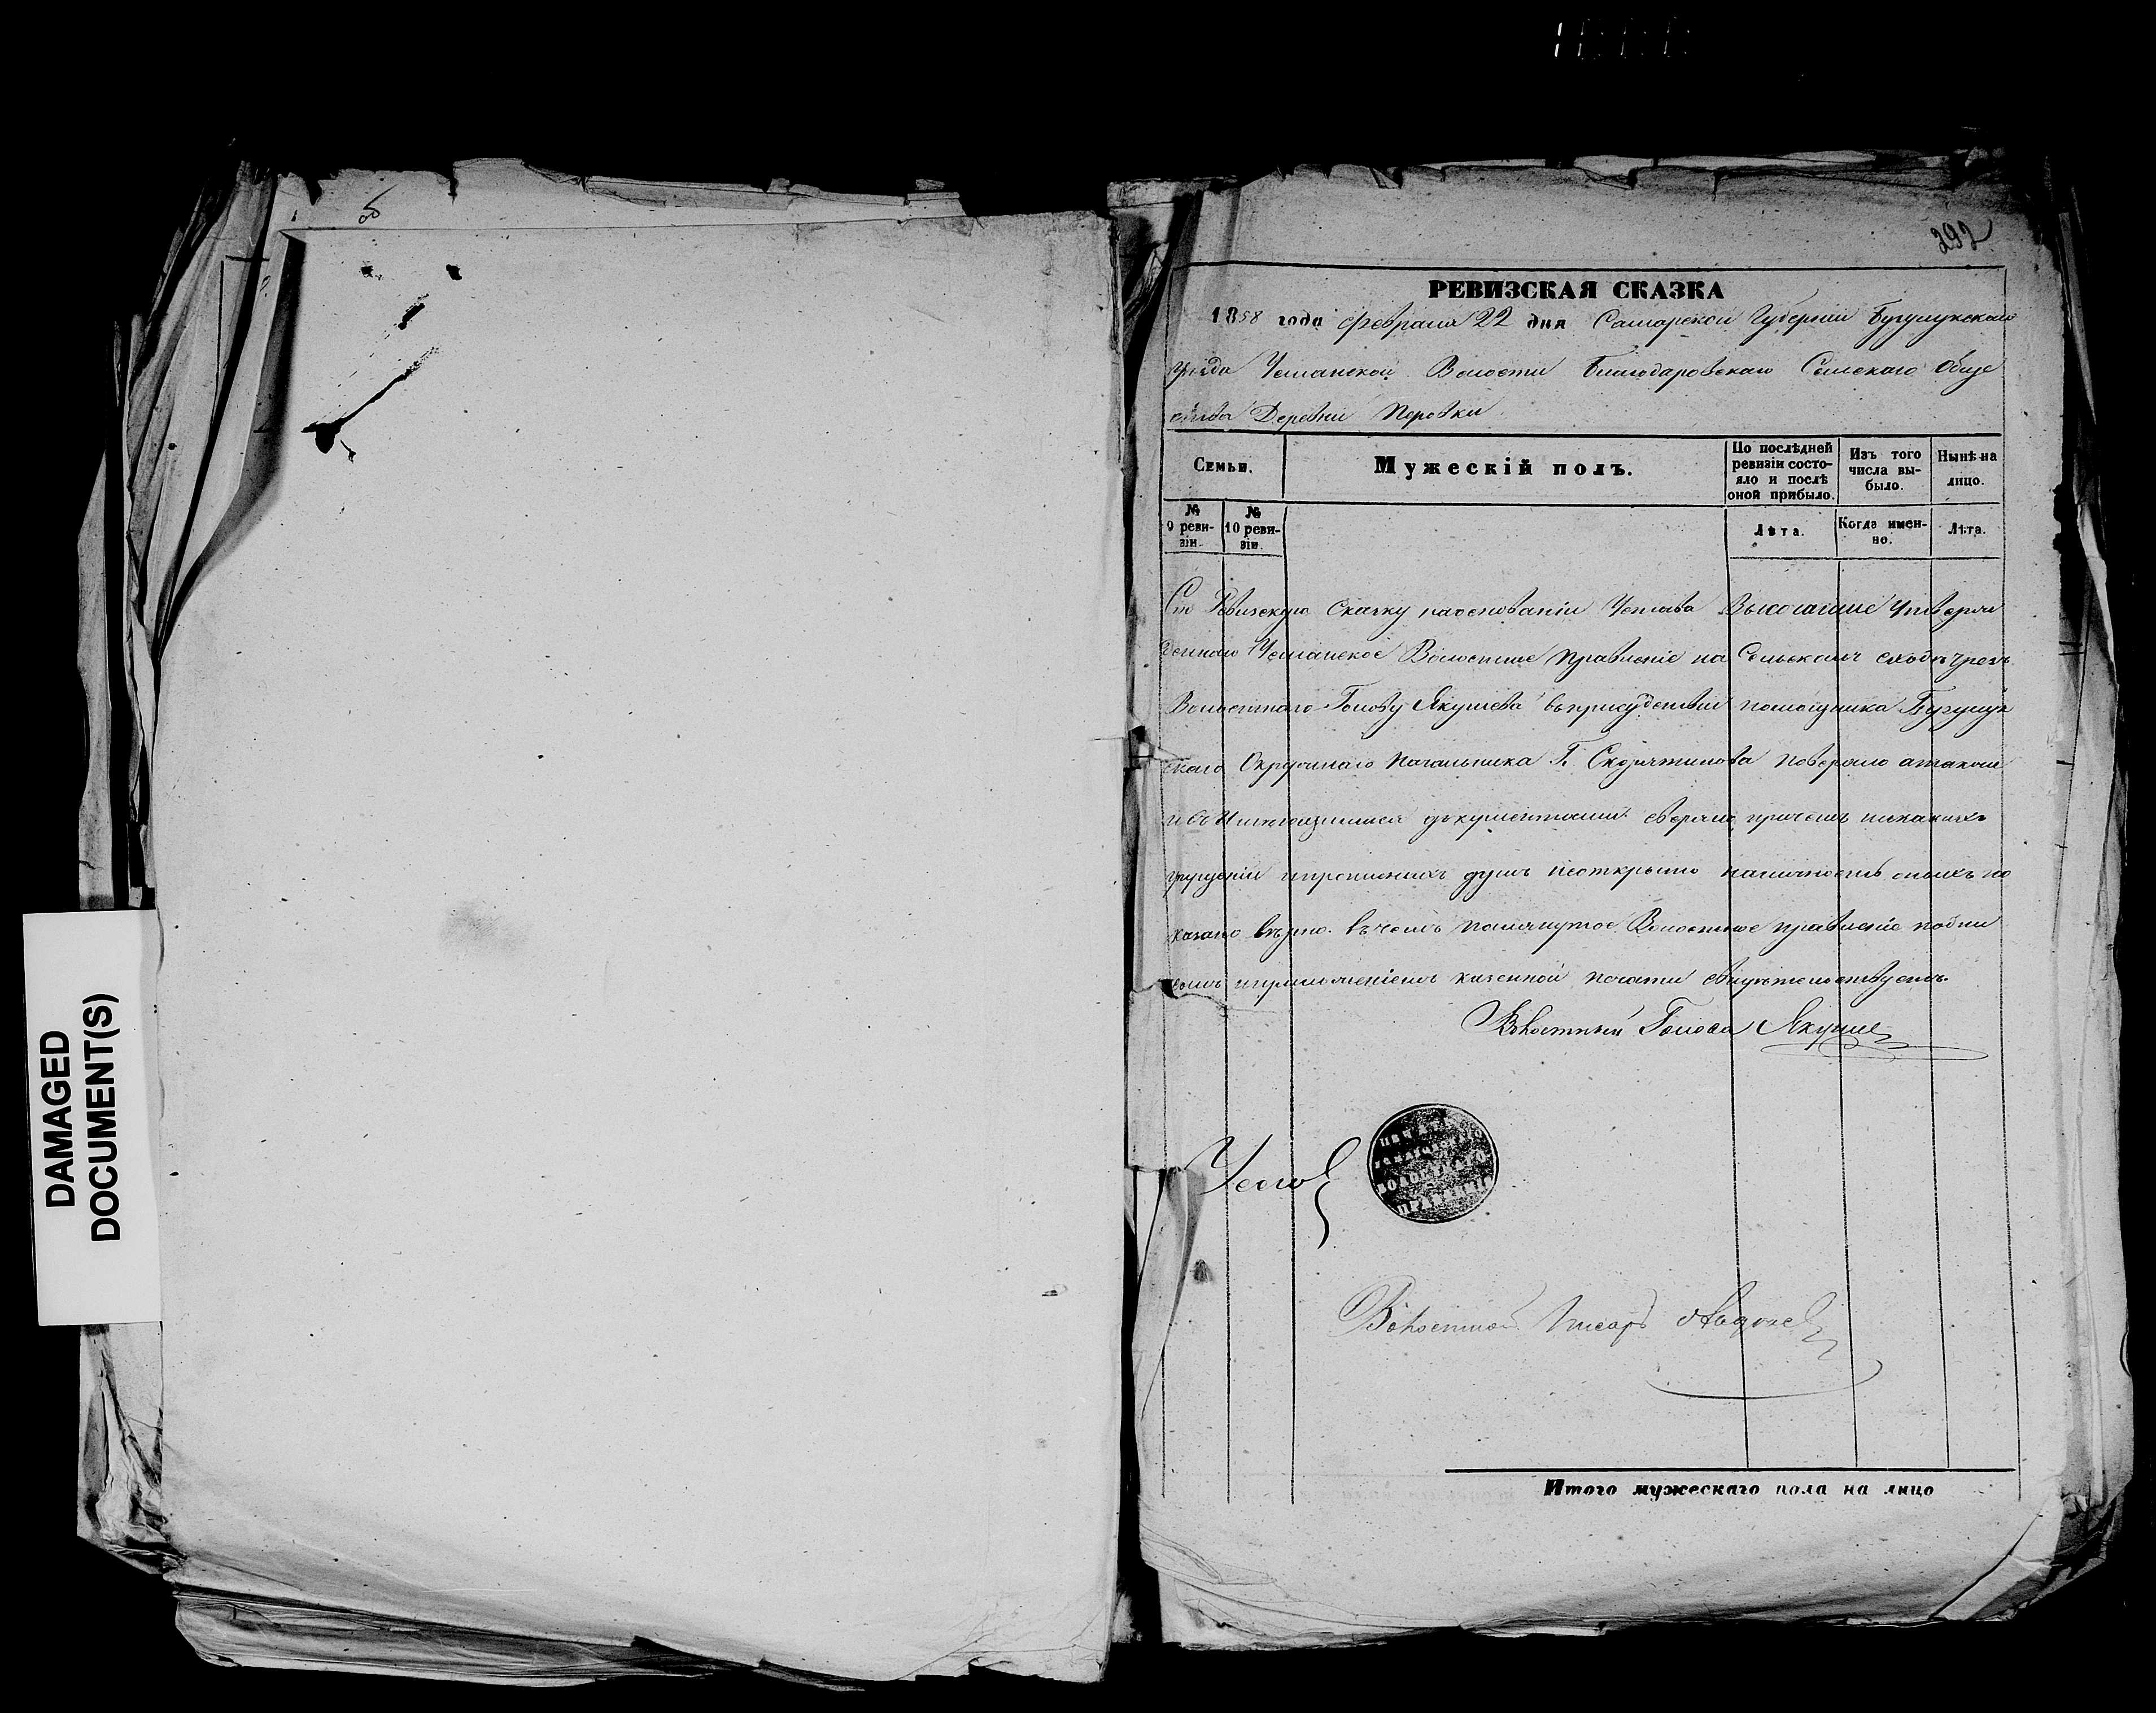 об
292
РЕВИЗСКАЯ СКАЗКА
1858 года Февраля 22 дня Самарской Губерніи Бугульмскаго
уѣзда Волости Благодаровскаго Сельскаго Обще
ства Деревни Перовки
Семьи.
Мужескій полъ.
По послѣдней ревизіи состо-
яло и послѣ
оной прибыло.
Изъ того
числа вы-
было.
Нынѣ на
лицо.
№
9 реви-
зіи.
№
10 реви-
зіи.
Лѣта.
Когда имен-
но.
Лѣта.
Сію Ревизскую Сказку наосновании Устава Высочайше Утверж
деннаго Волостное Правленіе на Сельскомъ сходѣ чрезъ
Волостнаго Голову Якушева въприсудствіи помощника
скаго Окружнаго Начальника Г. поверяло атакже
и съ Имѣющимися документами сверяло, причемъ никакихъ
упущеній ипрописныхъ душъ неоткрыто наличность оныхъ по
казано вѣрно. въчемъ помянутое Волостное правленіе подпи
сомъ иприложеніемъ казенной печати свидѣтельствуетъ.
Волостный Голова Якушев
ПЕЧАТЬ
ВОЛОСТНАГО
ПРАВЛЕНІЯ
Волостной Писарь
Итого мужескаго пола на лицо
DAMAGED
DOCUMENT(S)